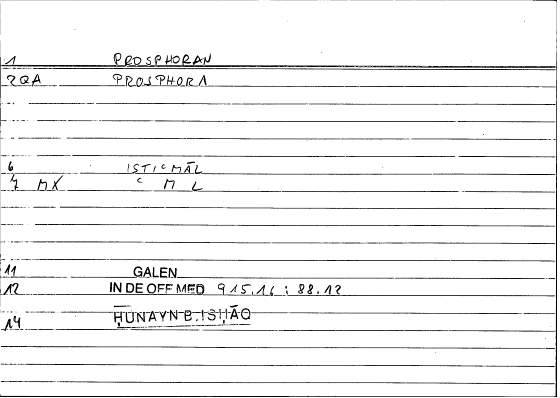 1 PROSPHORAN
2QA PROSPHORA
6 ISTIʿMĀL
7 MX ʿ M L
11 GALEN
12 IN DE OFF MED 915.16 : 88.12
14 ḤUNAYN B. ISḤĀQ